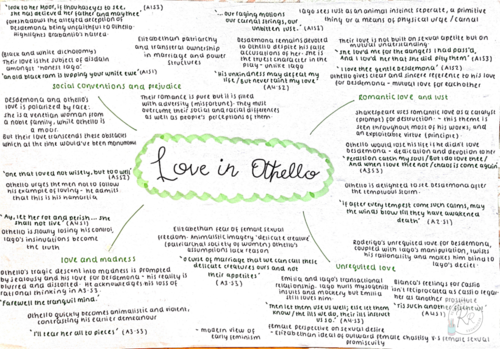 "Look to her Moor, if thou hast eyes to see,
she has deceived her father and may thee"
foreshadows the alleged deception of
desdemona being unfaithful to Othello
Highlights Brabantio's hatred.
"...our raging motions
our carnal stings, our
unbitted lusts." (A1S3)
Iago sees lust as an animal instinct separate, a primitive
thing or a means of physical urge / carnal
Elizabethan patriarchy
and transferal ownership
in marriage and power
structures
Desdemona remains devoted
to Othello despite his false
accusations of her. She is
the truest character in the
play - unlike Iago.
"His unkindness may defeat my
life / But never taint my love"
(A4:S2)
Their love is not built on sexual appetite but on
mutual understanding
"She loved me for the dangers I had pass'd,
And I loved her that she did pity them" (A1S3)
"I love thee gentle Desdemona" (A1S2)
Othello gives clear and sincere reference to his love
for Desdemona - mutual love for eachother
(Black and white dichotomy)
Their love is the subject of disdain
amongst "honest Iago."
"an old black ram is tupping your white ewe"
social conventions and prejudice
Desdemona and Othello's
love is polarized by race:
she is a Venetian woman from
a noble family, while Othello is
a moor.
But their love transcends these obstacles
which at the time would've been
Their romance is pure but it is filled
with adversity (misfortune). They must
overcome their social and racial differences
as well as people's perceptions of them.
romantic love and lust
Shakespeare uses romantic love as a catalyst
(prompt) for destruction - this theme is
seen throughout most of his works, and
an exploitable virtue (principle)
Othello would lose his life if he didn't love
Desdemona - dedication and devotion to her
"Perdition catch my soul / But I do love thee /
And when I love thee not / chaos is come again."
(A3S3)
Love in Othello
"One that loved not wisely, but too well"
(A5S2)
Othello urges the men not to follow
his example of loving - he admits
that this is his hamartia
"Ay, let her rot and perish... she
shall not live" (A4S1)
Othello is slowly losing his control,
Iago's insinuations become
the truth
Othello is delighted to see Desdemona after
the tempestuous storm
"If after every tempest come such calms, may
the winds blow till they have awakened
death" (A2:S1)
Elizabethan fear of female sexual
freedom - Animalistic imagery 'delicate creature'
Patriarchal society of women & Othello's
assumptions lack reason
"O curse of marriage that we can call these
delicate creatures ours and not
their appetites" (A3:S3)
Roderigo's unrequited love for Desdemona,
coupled with Iago's manipulation, twists
his rationality and makes him bling to
Iago's deceit
love and madness
Othello's tragic descent into madness is prompted
by jealousy and his love for Desdemona - his reality is
blurred and distorted - he acknowledges his loss of
rational thinking in A3:S3.
"Farewell the tranquil mind."
Othello quickly becomes animalistic and violent,
contrasting his earlier demeanour
"I'll tear her all to pieces" (A3:S3)
unrequited love
Emilia and Iago's transactional
relationship. Iago hurls misogynistic
insults and mockery but Emilia
still loves him
"Then let them use us well; else let them
know / the ills we do, their ills instruct
us so." (A4:S3)
- modern view of
early feminism
Bianca's feelings for Cassio
isn't reciprocated as Cassio regards
her as another prostitute
"'Tis such another fitchew"
(A4:S1)
female perspective on sexual desire
- Elizabethan ideal of outward female chastity & female sexual
promiscuity